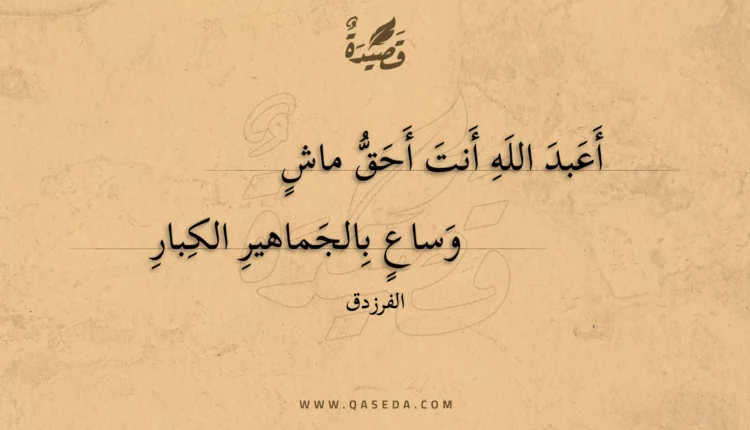 قَصِيْدَةٌ
أَعَبدَ اللَهِ أَنتَ أَحَقُّ ماشٍ
وَساعٍ بِالجَماهيرِ الكِبارِ
الفرزدق
WWW.QASEDA.COM